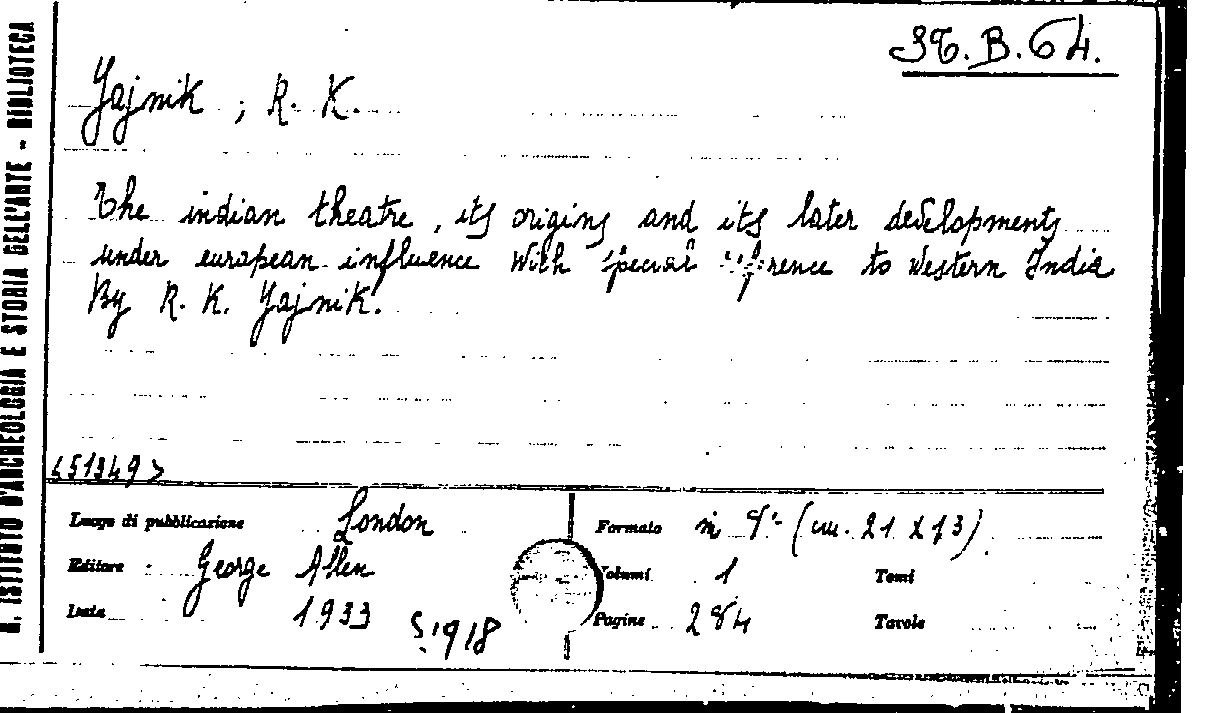 R. ISTITUTO D'ARCHEOLOGIA E STORIA DELL'ARTE - BIBLIOTECA
B.64.
Yajnik, R. K.
The indian theatre, its origins and its later developments
under european influence With special reference to Western India
By R. K. Yajnik.
<51349>
Luogo di pubblicazione London
Editore George Allen
Data 1933
S.1918
Formato in 8° (cm. 21 x 13)
Volumi 1 Tomi
Pagine 284 Tavole